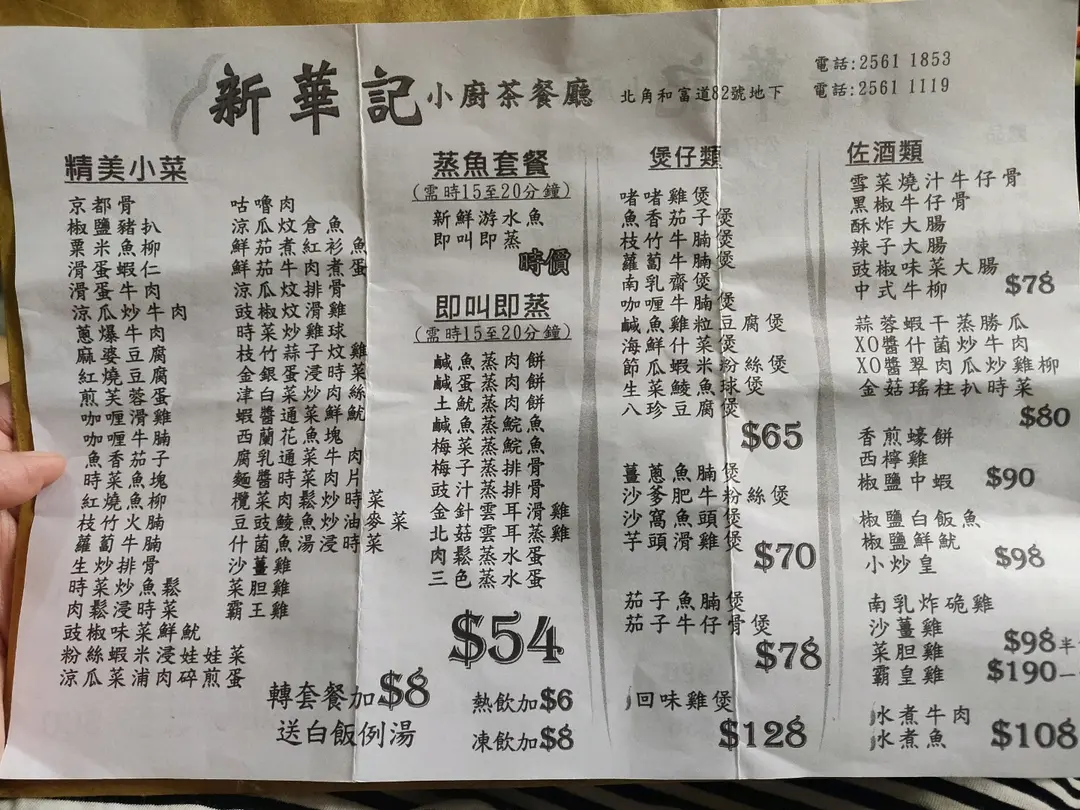 新華記小廚茶餐廳 北角和富道82號地下
電話:2561 1853
電話:2561 1119
精美小菜
京都骨
椒鹽豬扒
粟米魚柳
滑蛋蝦仁
滑蛋牛肉
涼瓜炒牛肉
蔥爆牛肉
麻婆豆腐
紅燒豆腐
煎芙蓉蛋
咖喱滑雞
咖喱牛腩
魚香茄子
時菜魚塊
紅燒魚柳
枝竹火腩
蘿蔔牛腩
生炒排骨
時菜炒魚鬆
肉鬆浸時菜
豉椒味菜鮮魷
粉絲蝦米浸娃娃菜
涼瓜菜浦肉碎煎蛋
咕嚕肉
涼瓜炆倉魚
鮮茄煮紅衫魚
鮮茄牛肉煮蛋
涼瓜炆排骨
豉椒炆滑雞
時菜炒雞球
枝竹蒜子炆雞
金銀蛋浸時菜
津白菜炒肉絲
蝦醬通菜鮮魷
西蘭花魚塊
腐乳通菜牛肉
麵醬時菜肉片
欖菜肉鬆炒時菜
豆豉鯪魚炒油麥菜
什菌魚湯浸時菜
沙薑雞
菜胆雞
霸王雞
轉套餐加$8
送白飯例湯
蒸魚套餐
(需時15至20分鐘)
新鮮游水魚
即叫即蒸
時價
即叫即蒸
(需時15至20分鐘)
鹹魚蒸肉餅
鹹蛋蒸肉餅
土魷蒸肉餅
鹹魚蒸鯇魚
梅菜蒸鯇魚
梅子蒸排骨
豉汁蒸排骨
金針雲耳滑雞
北菇雲耳蒸雞
肉鬆蒸水蛋
三色蒸水蛋
$54
熱飲加$6
凍飲加$8
煲仔類
啫啫雞煲
魚香茄子煲
枝竹牛腩煲
蘿蔔牛腩煲
南乳齋煲
咖喱牛腩煲
鹹魚雞粒豆腐煲
海鮮什菜煲
節瓜蝦米粉絲煲
生菜鯪魚球煲
八珍豆腐煲
$65
薑蔥魚腩煲
沙爹肥牛粉絲煲
沙窩魚頭煲
芋頭滑雞煲
$70
茄子魚腩煲
茄子牛仔骨煲
$78
回味雞煲
$128
佐酒類
雪菜燒汁牛仔骨
黑椒牛仔骨
酥炸大腸
辣子大腸
豉椒味菜大腸
中式牛柳 $78
蒜蓉蝦干蒸勝瓜
XO醬什菌炒牛肉
XO醬翠肉瓜炒雞柳
金菇瑤柱扒時菜
$80
香煎蠔餅
西檸雞
椒鹽中蝦 $90
椒鹽白飯魚
椒鹽鮮魷
小炒皇 $98
南乳炸硊雞
沙薑雞
菜胆雞 $98半
霸皇雞 $190一
水煮牛肉
水煮魚 $108